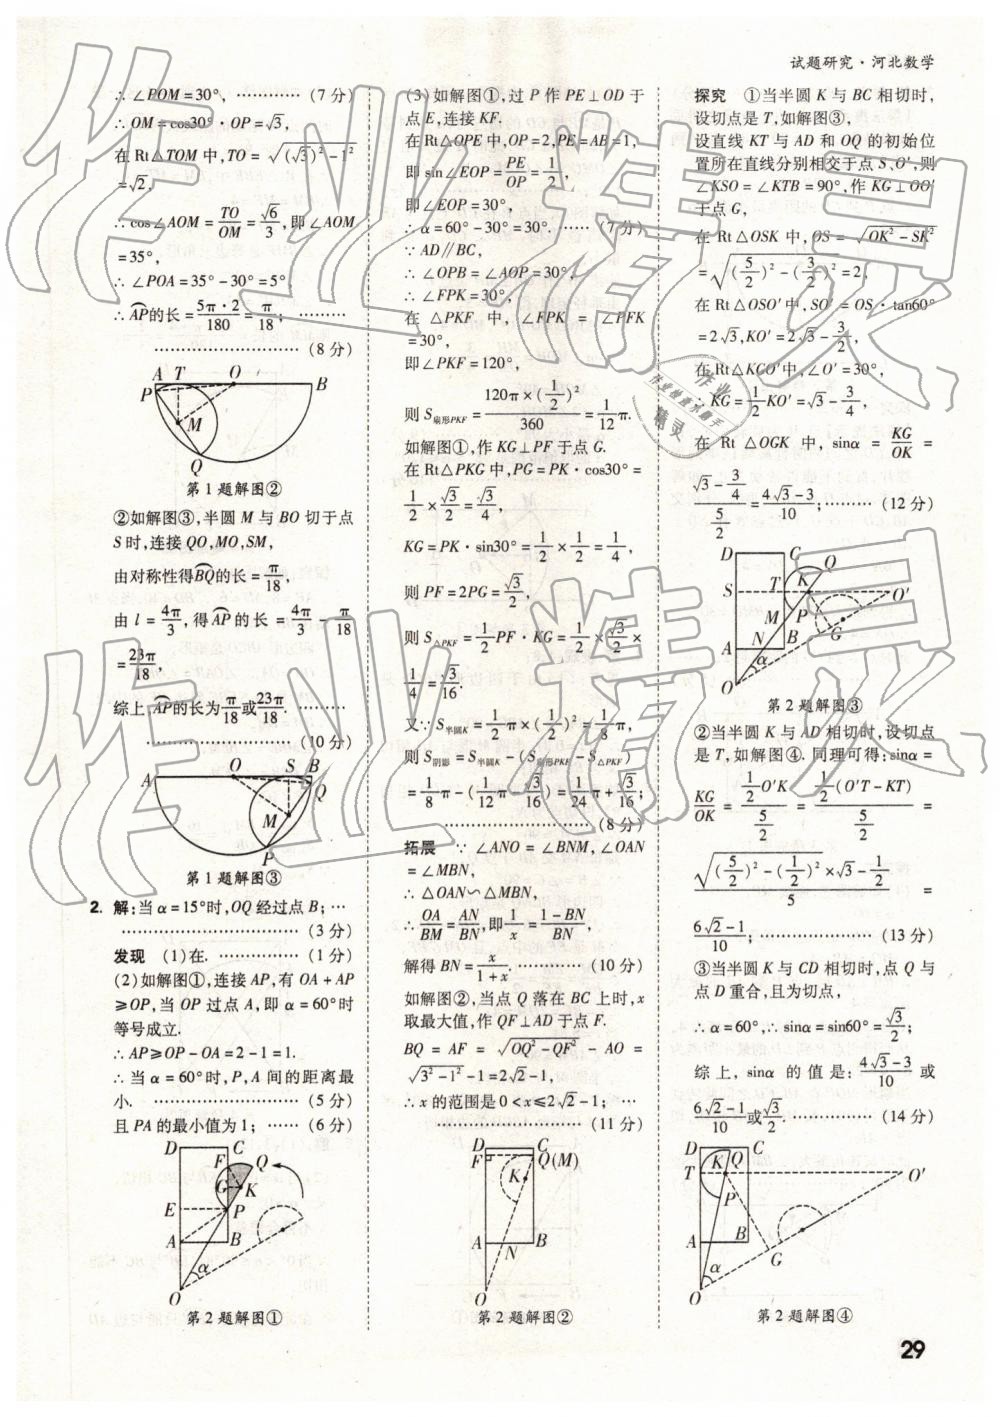 试题研究·河北数学
∴∠POM=30°, ………… (7分)
∴OM=cos30°·OP=√3,
在Rt△TOM中,TO=√((√3)²-1²)
=√2,
∴cos∠AOM=TO/OM=√6/3,即∠AOM
=35°,
∴∠POA=35°-30°=5°,
∴⌒AP的长=5π·2/180=π/18; ………
…………………… (8分)
A T O B
P
M
Q
第1题解图②
②如解图③,半圆M与BO切于点
S时,连接QO,MO,SM,
由对称性得⌒BQ的长=π/18,
由l=4π/3,得⌒AP的长=4π/3-π/18
=23π/18,
综上,⌒AP的长为π/18或23π/18. ………
…………………… (10分)
A O S B
Q
M
P
第1题解图③
2. 解:当α=15°时,OQ经过点B; …
…………………………… (3分)
发现 (1)在. ………… (1分)
(2)如解图①,连接AP,有OA+AP
≥OP,当OP过点A,即α=60°时
等号成立.
∴AP≥OP-OA=2-1=1.
∴当α=60°时,P,A间的距离最
小. …………………… (5分)
且PA的最小值为1; …… (6分)
D C
F Q
G K
E P
A B
α
O
第2题解图①
(3)如解图①,过P作PE⊥OD于
点E,连接KF.
在Rt△OPE中,OP=2,PE=AB=1,
即sin∠EOP=PE/OP=1/2,
即∠EOP=30°,
∴α=60°-30°=30°. …… (7分)
∵AD∥BC,
∴∠OPB=∠AOP=30°,
∴∠FPK=30°,
在△PKF中,∠FPK=∠PFK
=30°,
即∠PKF=120°,
则S扇形PKF=120π×(1/2)²/360=1/12π.
如解图①,作KG⊥PF于点G.
在Rt△PKG中,PG=PK·cos30°=
1/2×√3/2=√3/4,
KG=PK·sin30°=1/2×1/2=1/4,
则PF=2PG=√3/2,
则S△PKF=1/2PF·KG=1/2×√3/2×
1/4=√3/16.
又∵S半圆K=1/2π×(1/2)²=1/8π,
则S阴影=S半圆K-(S扇形PKF-S△PKF)
=1/8π-(1/12π-√3/16)=1/24π+√3/16;
…………………………… (8分)
拓展 ∵∠ANO=∠BNM,∠OAN
=∠MBN,
∴△OAN∽△MBN,
∴OA/BM=AN/BN,即1/x=(1-BN)/BN,
解得BN=x/(1+x). ………… (10分)
如解图②,当点Q落在BC上时,x
取最大值,作QF⊥AD于点F.
BQ=AF=√(OQ²-QF²)-AO=
√(3²-1²)-1=2√2-1,
∴x的范围是0<x≤2√2-1; ……
………………………… (11分)
D C
F Q(M)
K
A N B
O
第2题解图②
探究 ①当半圆K与BC相切时,
设切点是T,如解图③,
设直线KT与AD和OQ的初始位
置所在直线分别相交于点S、O′,则
∠KSO=∠KTB=90°,作KG⊥OO′
于点G,
在Rt△OSK中,OS=√(OK²-SK²)
=√((5/2)²-(3/2)²)=2,
在Rt△OSO′中,SO′=OS·tan60°
=2√3,KO′=2√3-3/2,
在Rt△KGO′中,∠O′=30°,
∴KG=1/2KO′=√3-3/4,
在Rt△OGK中,sinα=KG/OK=
(√3-3/4)/(5/2)=(4√3-3)/10; ……… (12分)
D C
Q
T K
S O′
P
G
N B
A
α
O
第2题解图③
②当半圆K与AD相切时,设切点
是T,如解图④.同理可得:sinα=
KG/OK=(1/2O′K)/(5/2)=(1/2(O′T-KT))/(5/2)=
(√((5/2)²-(1/2)²)×√3-1/2)/5=
(6√2-1)/10; ………………… (13分)
③当半圆K与CD相切时,点Q与
点D重合,且为切点,
∴α=60°,∴sinα=sin60°=√3/2;
综上,sinα的值是:(4√3-3)/10或
(6√2-1)/10或√3/2. ………… (14分)
D C
K Q
T O′
P
A B
G
α
O
第2题解图④
29
作业精灵
作业精灵